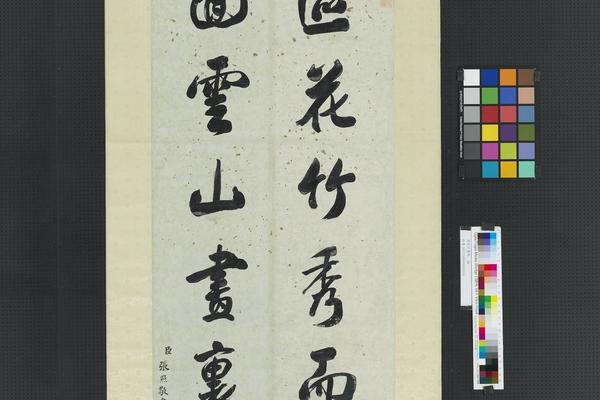 區花竹秀而
面雲山畫裏
臣張照敬